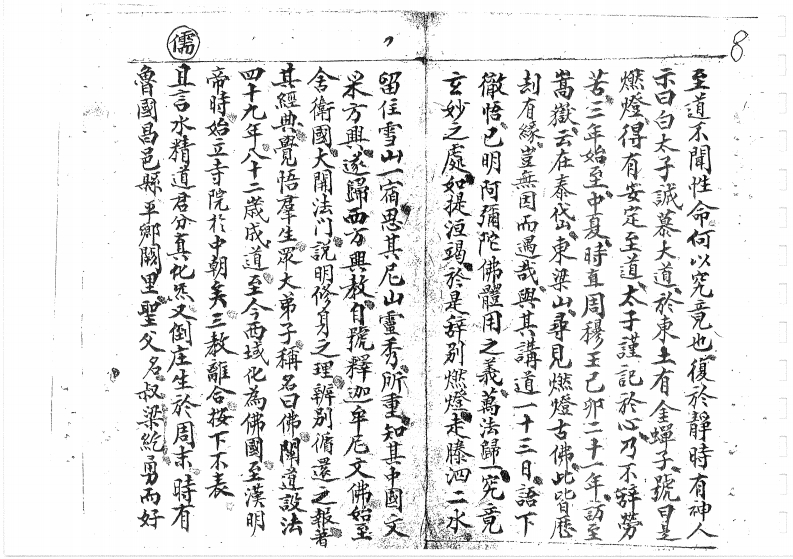 8
至道不聞性命何以究竟也復於靜時有神人
示曰白太子誠慕大道於東土有金蟬子號曰是
燃燈得有安定至道太子謹記於心乃不辭勞
苦三年始至中夏時直周穆王己卯二十一年訪至
嵩嶽云在泰岱東梁山尋見燃燈古佛此皆歷
刦有緣豈無因而遇哉與其講道一十三日語下
徹悟已明阿彌陀佛體用之義萬法歸一究竟
玄妙之處如提洹竭於是辞别燃燈走滕泗二水
留住雪山一宿思其尼山靈秀所重知其中國文
采方興遂歸西方興教自號釋迦牟尼文佛始至
舍衛國大開法門說明修身之理辨别循還之報著
其經典覺悟羣生眾大弟子稱名曰佛闡道設法
四十九年八十二歲成道至今西域化為佛國至漢明
帝時始立寺院於中朝矣三教離合按下不表
儒
且言水精道君分真化炁又倒庄生於周末時有
魯國昌邑縣平鄉闕里聖父名叔梁紇勇而好